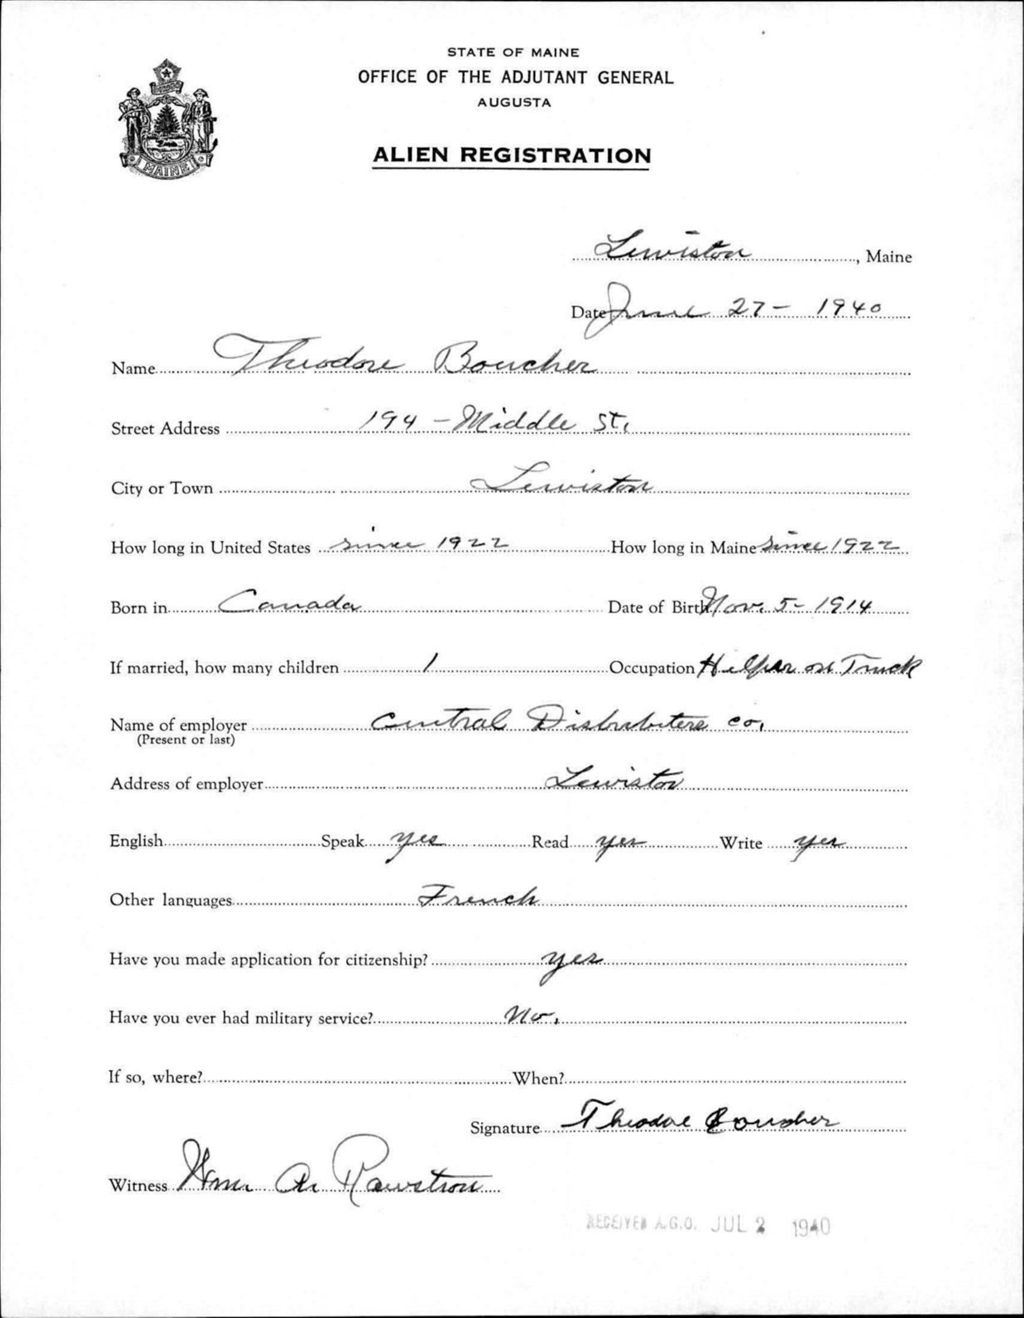 STATE OF MAINE
OFFICE OF THE ADJUTANT GENERAL
AUGUSTA
ALIEN REGISTRATION
MAINE
Lewiston, Maine
Date June 27 - 1940
Name Theodore Boucher
Street Address 194 - Middle St.
City or Town Lewiston
How long in United States since 1922 How long in Maine since 1922
Born in Canada Date of Birth Nov. 5 - 1914
If married, how many children 1 Occupation Helper on Truck
Name of employer Central Distributers co.
(Present or last)
Address of employer Lewiston
English Speak yes Read yes Write yes
Other languages French
Have you made application for citizenship? yes
Have you ever had military service? No.
If so, where? When?
Signature Theodore Boucher
Witness Wm A. Rawstron
RECEIVED A.G.O. JUL 2 1940